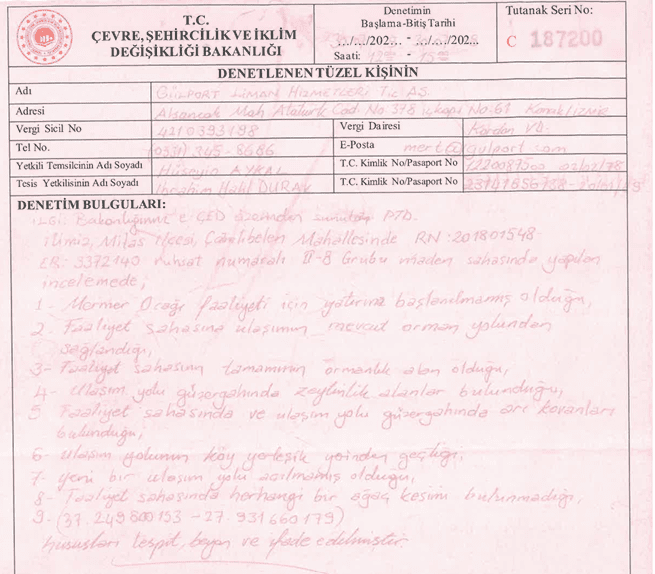 T.C.
ÇEVRE, ŞEHİRCİLİK VE İKLİM
DEĞİŞİKLİĞİ BAKANLIĞI
Denetimin
Başlama-Bitiş Tarihi
.../.../202... - .../.../202...
Saati:
Tutanak Seri No:
C 187200
DENETLENEN TÜZEL KİŞİNİN
Adı GÜLPORT LİMAN HİZMETLERİ TİC AŞ.
Adresi Alsancak Mah Atatürk Cad No 378 içkapı No 61 Konak/İZMİR
Vergi Sicil No 4210393198 Vergi Dairesi Kordon VD.
Tel No. (0531) 345-8686 E-Posta @gulport.com
Yetkili Temsilcinin Adı Soyadı Hüseyin AYKAL T.C. Kimlik No/Pasaport No
Tesis Yetkilisinin Adı Soyadı İbrahim Halil DURAK T.C. Kimlik No/Pasaport No
DENETİM BULGULARI:
İLGİ: Bakanlığımız e-ÇED üzerinden sunulan PTD.
İlimiz, Milas ilçesi, Çamlıbelen Mahallesinde RN:201801548
ER: 3372140 ruhsat numaralı II-B Grubu maden sahasında yapılan
incelemede;
1- Mermer Ocağı faaliyeti için yatırıma başlanılmamış olduğu,
2. Faaliyet sahasına ulaşımın mevcut orman yolundan
sağlandığı,
3- Faaliyet sahasının tamamının ormanlık alan olduğu,
4- Ulaşım yolu güzergahında zeytinlik alanlar bulunduğu,
5 Faaliyet sahasında ve ulaşım yolu güzergahında arı kovanları
bulunduğu,
6- Ulaşım yolunun köy yerleşik yerinden geçtiği,
7- Yeni bir ulaşım yolu açılmamış olduğu,
8- Faaliyet sahasında herhangi bir ağaç kesimi bulunmadığı,
9- (37.249800153 - 27.931660179)
hususları tespit, beyan ve ifade edilmiştir.